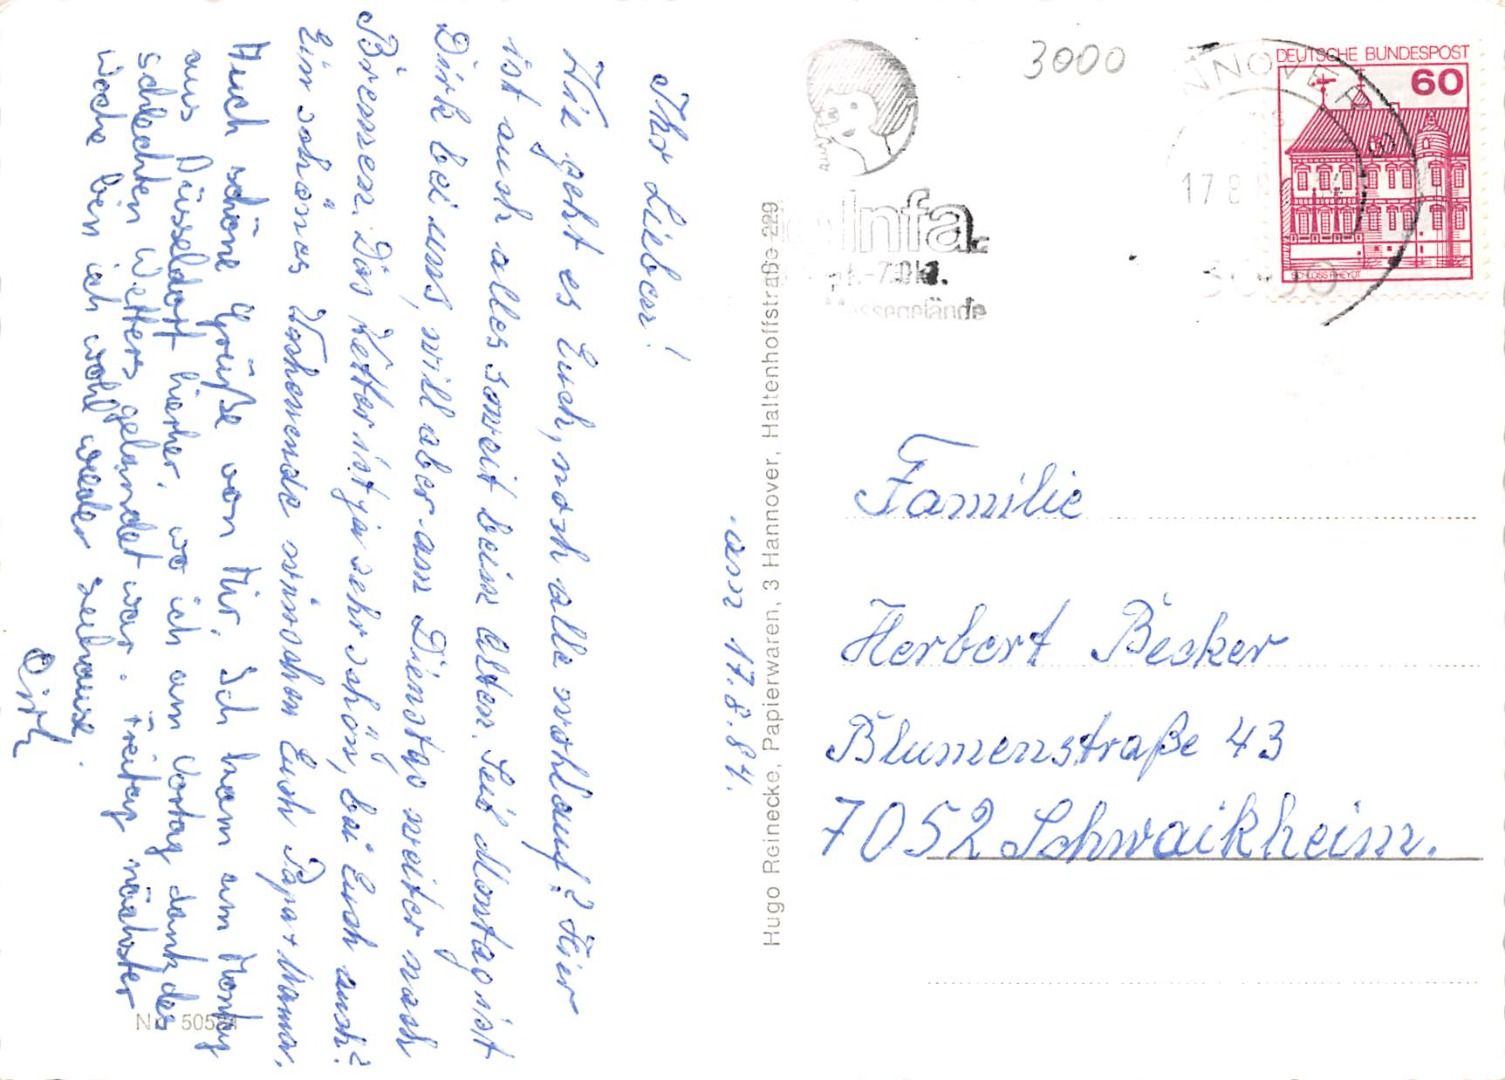 am 17.8.84.
Ihr Lieben!
Wie geht es Euch, noch alle wohlauf? Hier
ist auch alles soweit beim alten. Seit Montag ist
Dirk bei uns, will aber am Dienstag weiter nach
Bremen. Das Wetter ist ja sehr schön, bei Euch auch?
Ein schönes Wochenende wünschen Euch Papa + Mama.
Auch schöne Grüße von Mir. Ich kam am Montag
aus Düsseldorf hierher, wo ich am Vortag dank des
schlechten Wetters gelandet war. Freitag nächster
Woche bin ich wohl wieder zuhause.
Dirk
Nr. 505
Hugo Reinecke, Papierwaren, 3 Hannover, Haltenhoffstraße 229
3000
Infa
-7.Okt.
Messegelände
HANNOVER
17.8.
3000
DEUTSCHE BUNDESPOST
60
SCHLOSS RHEYDT
Familie
Herbert Becker
Blumenstraße 43
7052 Schwaikheim.